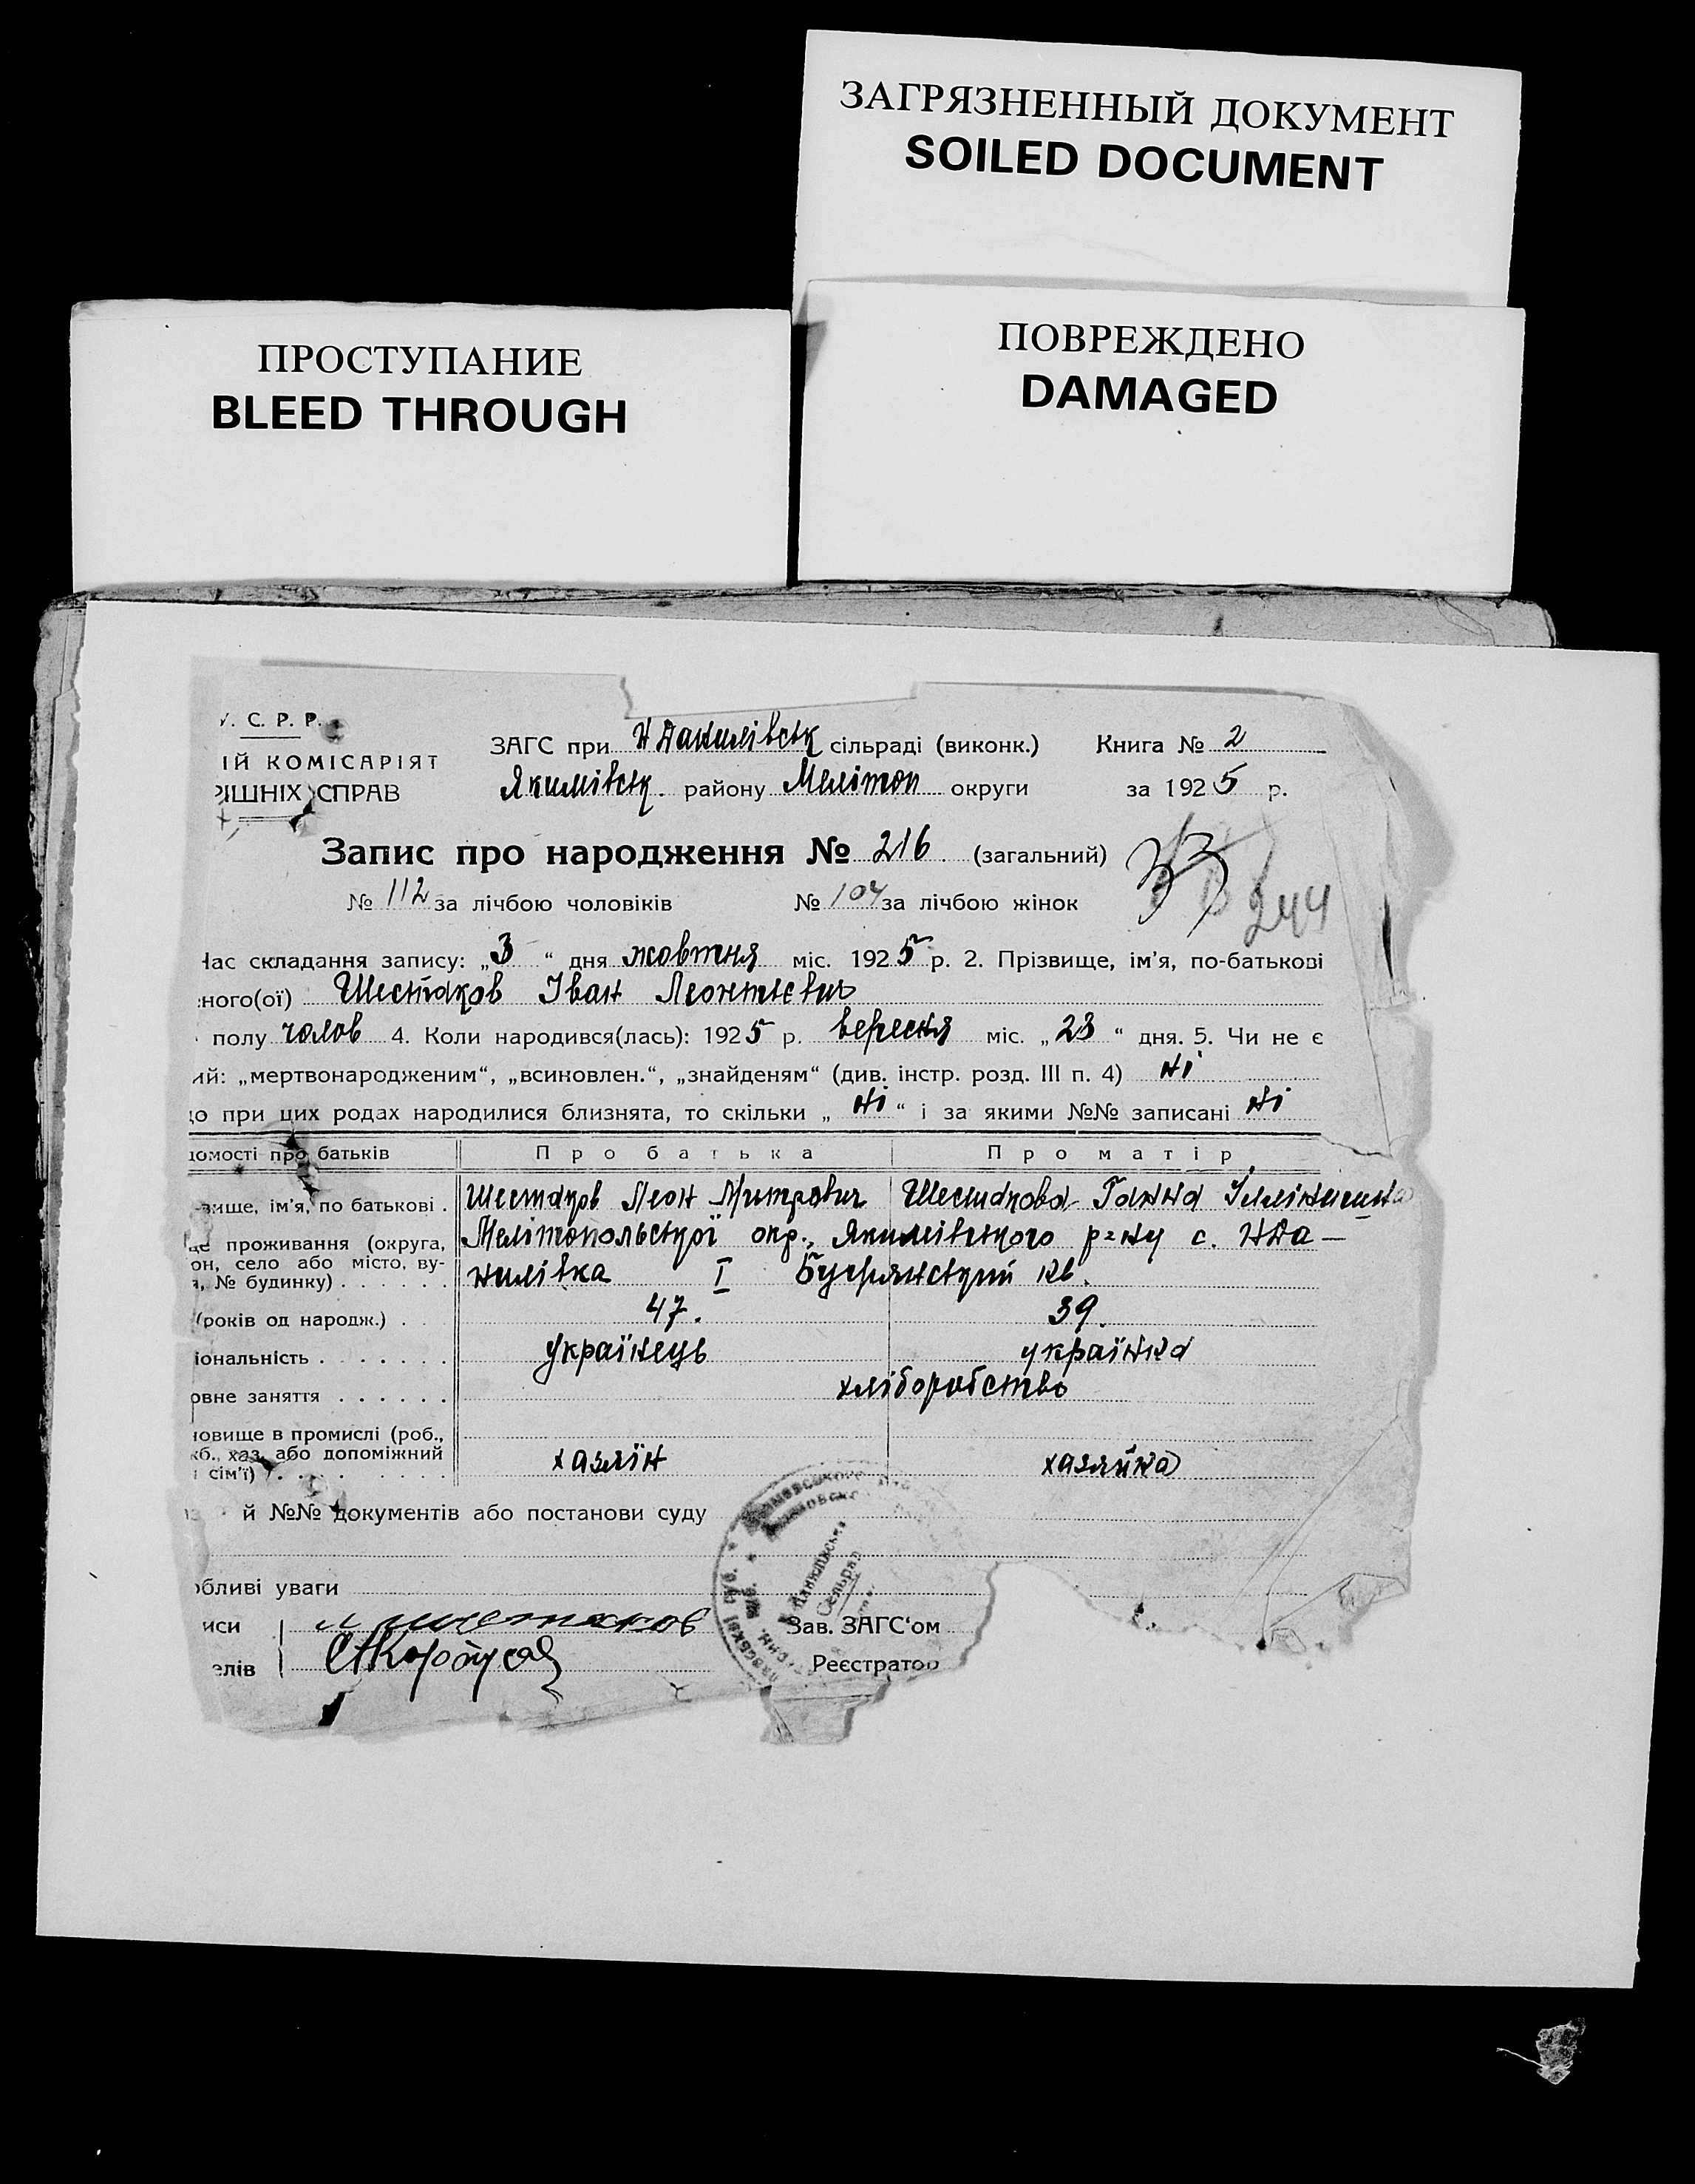 ЗАГРЯЗНЕННЫЙ ДОКУМЕНТ
SOILED DOCUMENT
ПРОСТУПАНИЕ
BLEED THROUGH
ПОВРЕЖДЕНО
DAMAGED
У. С. Р. Р.
ІЙ КОМІСАРІЯТ
РІШНІХ СПРАВ
ЗАГС при Н Данилівськ сільраді (виконк.) Книга № 2
Якимівськ. району Мелітоп округи за 1925 р.
Запис про народження № 216 (загальний)
33
244
№ 112 за лічбою чоловіків № 104 за лічбою жінок
Час складання запису: „3“ дня жовтня міс. 1925 р. 2. Прізвище, ім'я, по-батькові
ного(ої) Шестаков Іван Леонтієвич
полу чолов 4. Коли народився(лась): 1925 р. вересня міс. „23“ дня. 5. Чи не є
ий: „мертвонародженим“, „всиновлен.“, „знайденям“ (див. інстр. розд. III п. 4) ні
що при цих родах народилися близнята, то скільки „ні“ і за якими №№ записані ні
домості про батьків Про батька Про матір
звище, ім'я, по батькові . Шестаков Леон Митрович Шестакова Ганна
це проживання (округа, Мелітопольської окр., Якимівського р-ну с. НДа-
он, село або місто, ву-
, № будинку) . . . . . нилівка I кв.
(років од народж.) . . 47. 39.
іональність . . . . . . . українець українка
овне заняття . . . . . . хліборобство
новище в промислі (роб.,
жб., хаз. або допоміжний
сім'ї) . . . . . . . . хазяїн хазяйка
й №№ документів або постанови суду
обливі уваги
иси Л Шестаков Зав. ЗАГС'ом
елів Реєстратор